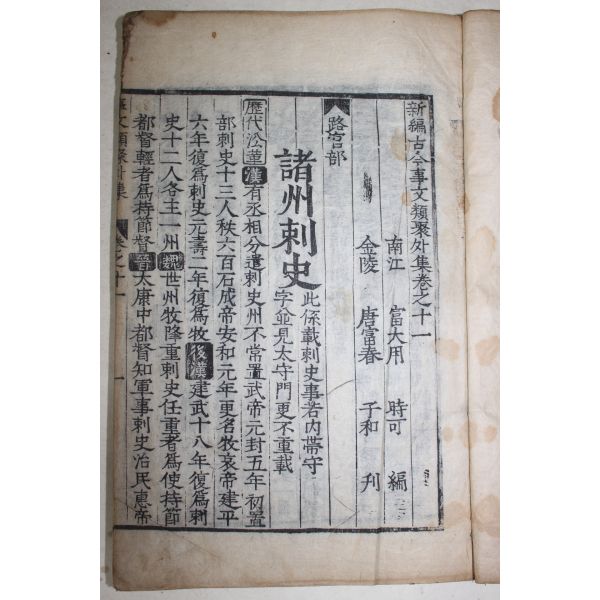 新編古今事文類聚外集卷之十一
南江 富大用 時可 編
金陵 唐富春 子和 刊
路官部
諸州刺史 此係載刺史事若内帶守
字並見太守門更不重載
歷代沿革 漢 有丞相分遣刺史州不常置武帝元封五年初置
部刺史十三人秩六百石成帝安和元年更名牧哀帝建平
六年復爲刺史元壽二年復爲牧 後漢 建武十八年復爲刺
史十二人各主一州 魏 世州牧隆重刺史任重者爲使持節
都督輕者爲持節督 晉 太康中都督知軍事刺史治民惠帝
文類聚外集 卷之十一 一